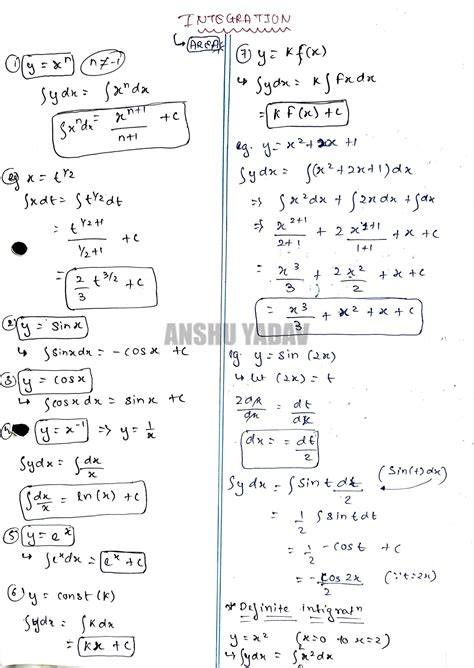 INTEGRATION
↳ AREA
① y = xⁿ n ≠ -1
∫ydx = ∫xⁿdx
∫xⁿdx = xⁿ⁺¹/n+1 + c
eg x = t^1/2
∫xdt = ∫t^1/2 dt
= t^1/2+1 / 1/2+1 + c
= 2/3 t^3/2 + c
② y = sinx
↳ ∫sinxdx = -cosx + c
③ y = cosx
↳ ∫cosxdx = sinx + c
y = x⁻¹ ⇒ y = 1/x
∫ydx = ∫dx/x
∫dx/x = ln(x) + c
⑤ y = eˣ
↳ ∫eˣdx = eˣ + c
⑥ y = const (k)
∫ydx = ∫kdx
= kx + c
⑦ y = k f(x)
↳ ∫ydx = k∫fxdx
= k F(x) + c
eg. y = x² + 2x + 1
∫ydx = ∫(x²+2x+1)dx
⇒ ∫x²dx + ∫2xdx + ∫dx
⇒ x²⁺¹/2+1 + 2x¹⁺¹/1+1 + x + c
= x³/3 + 2x²/2 + x + c
= x³/3 + x² + x + c
ANSHU YADAV
eg. y = sin (2x)
↳ let (2x) = t
2dx/dx = dt/dx
dx = = dt/2
∫ydx = ∫sint dt/2 (sin(t)dx)
= 1/2 ∫sintdt
= 1/2 -cost + c
= -cos2x/2 (∵t=2x)
Definite
y = x² (x=0 to x=2)
↳ ∫ydx = ∫x²dx